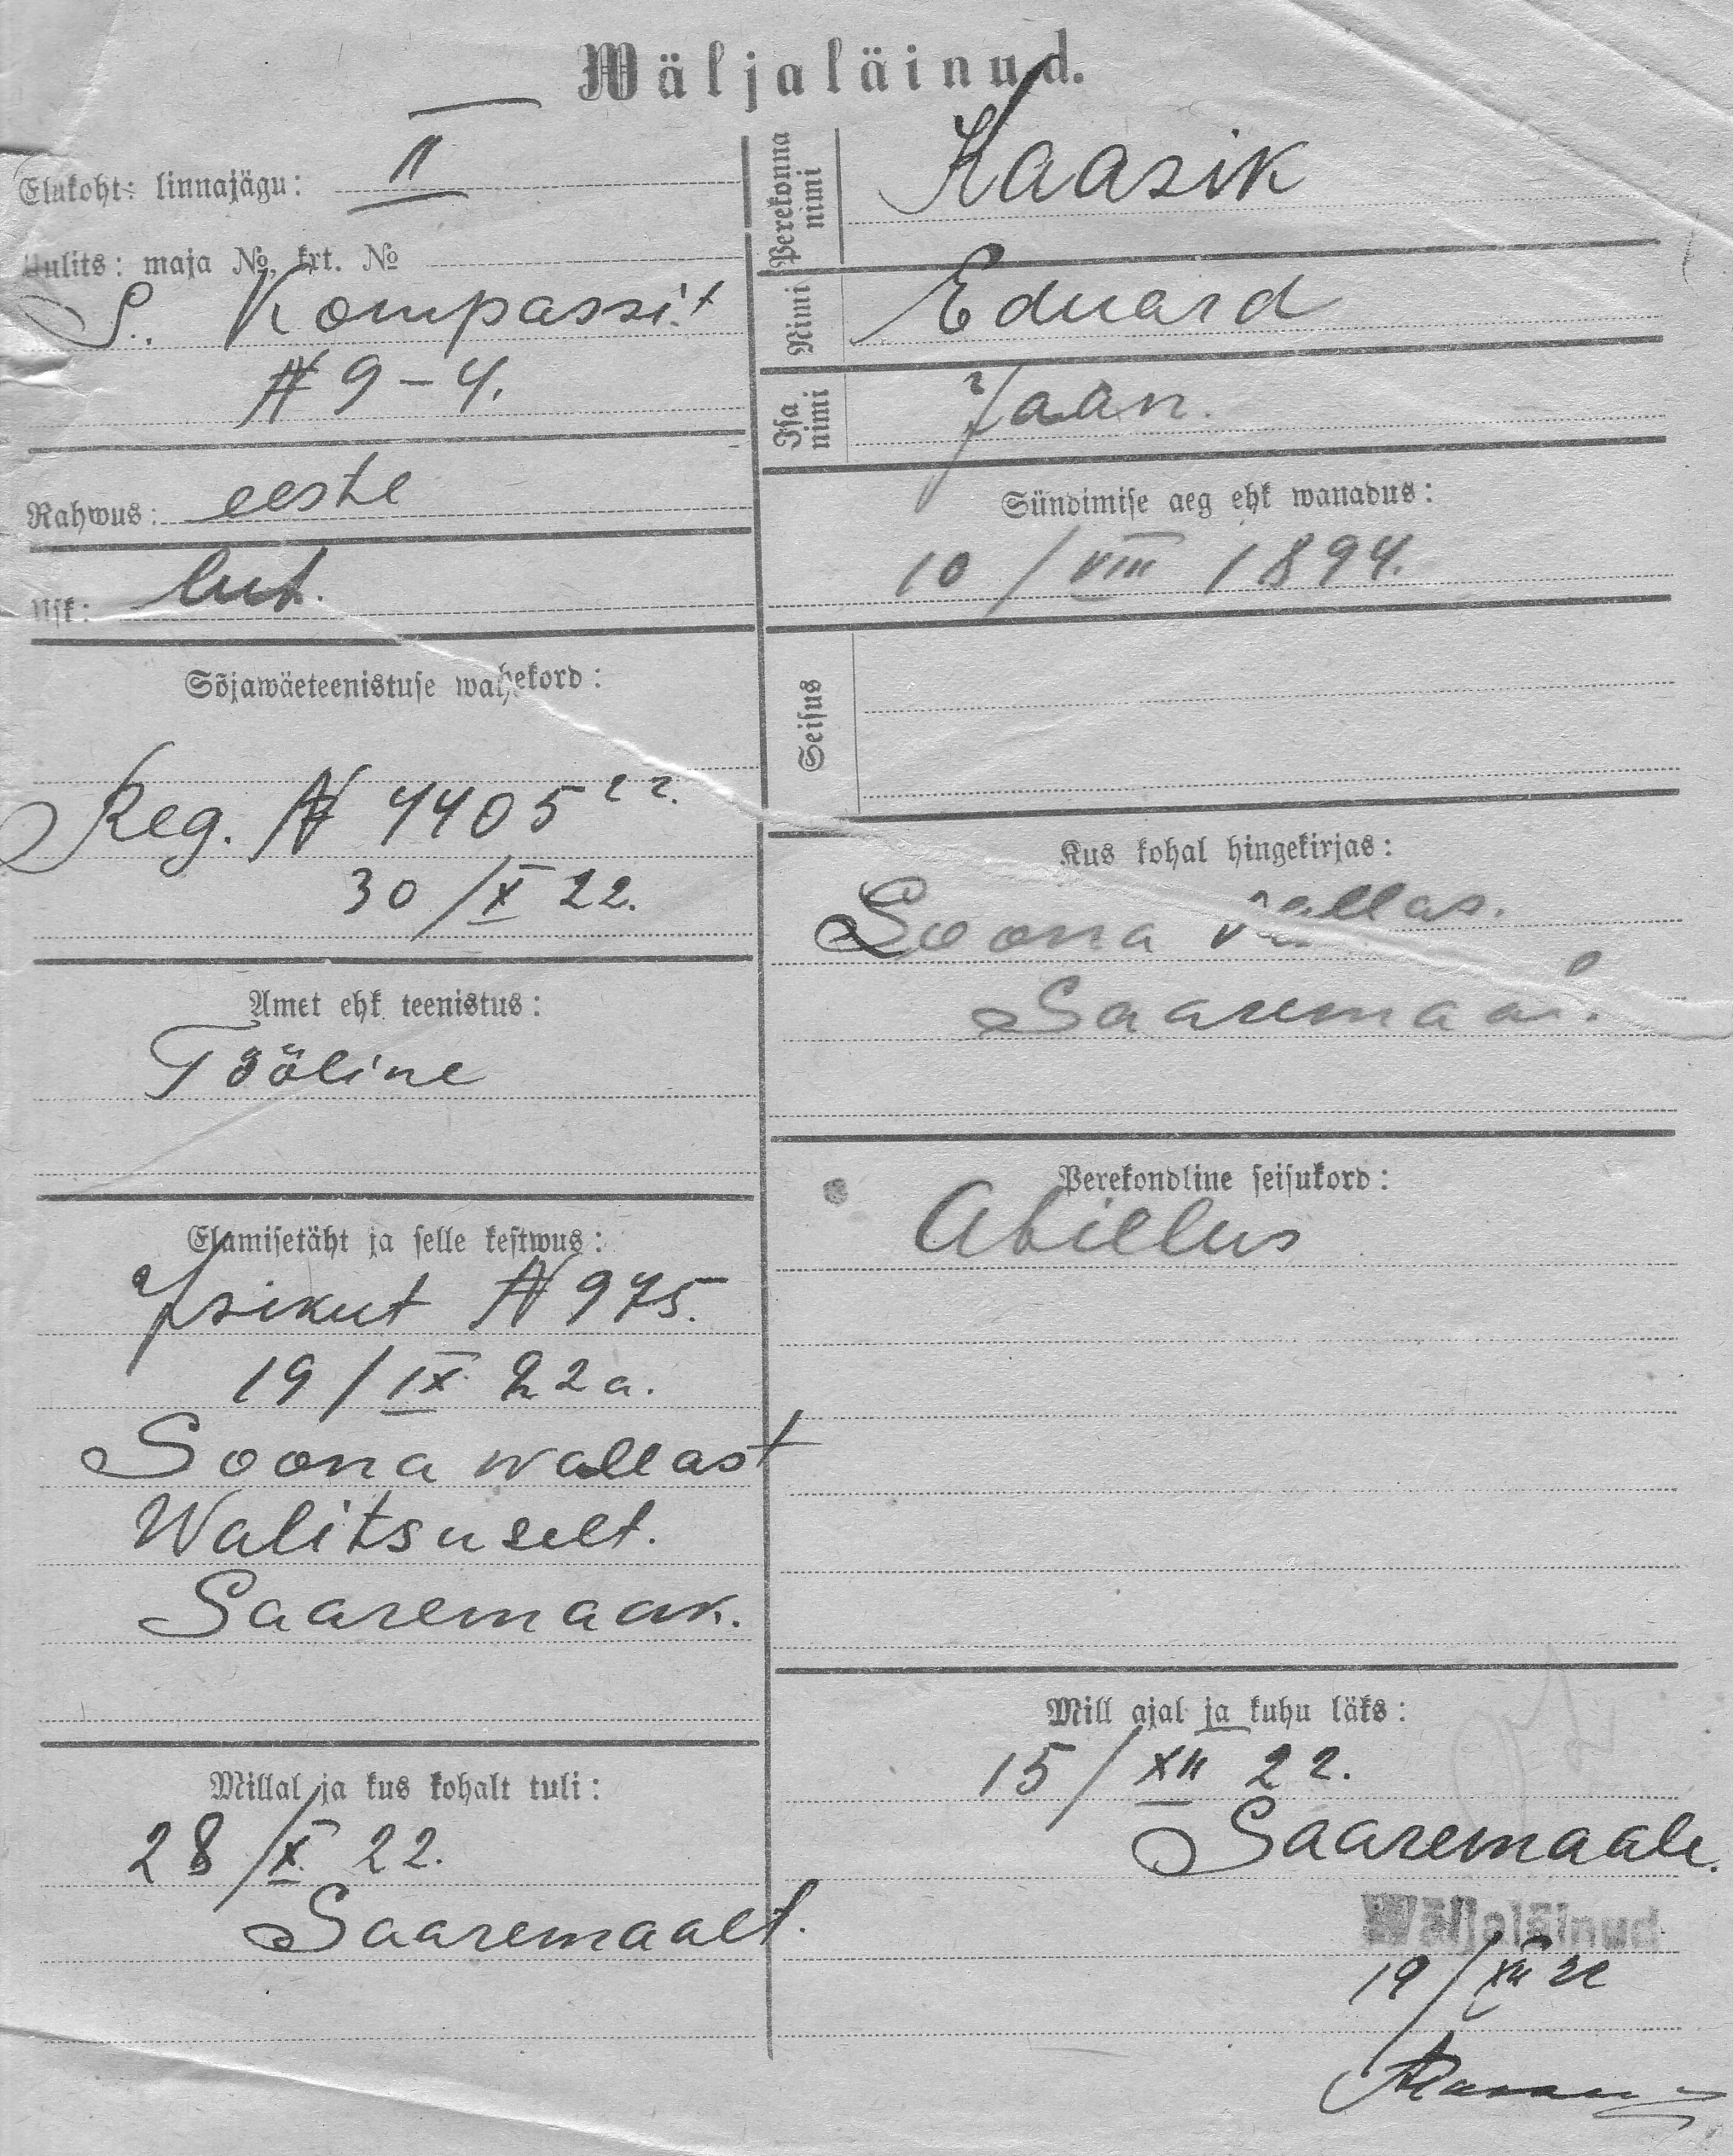 Wäljaläinud.
Elukoht: linnajägu: II
Uulits: maja No, krt. No
S. Kompassi t
№ 9-4.
Rahwus: eeste
Usk: lut.
Sõjawäeteenistuse wahekord:
Reg. № 4405 22.
30/X 22.
Amet ehk teenistus:
Tööline
Elamisetäht ja selle kestwus:
Isikut № 975.
19/IX 22 a.
Soona wallast
Walitsuselt.
Saaremaak.
Millal ja kus kohalt tuli:
28/X 22.
Saaremaalt.
Perekonna nimi Kaasik
Nimi Eduard
Isa nimi Jaan.
Sündimise aeg ehk wanadus:
10/VIII 1894.
Seisus
Kus kohal hingekirjas:
Soona vallas.
Saaremaal.
Perekondline seisukord:
Abiellus
Mill ajal ja kuhu läks:
15/XII 22.
Saaremaale.
Wäljaläinud
19/XII 22